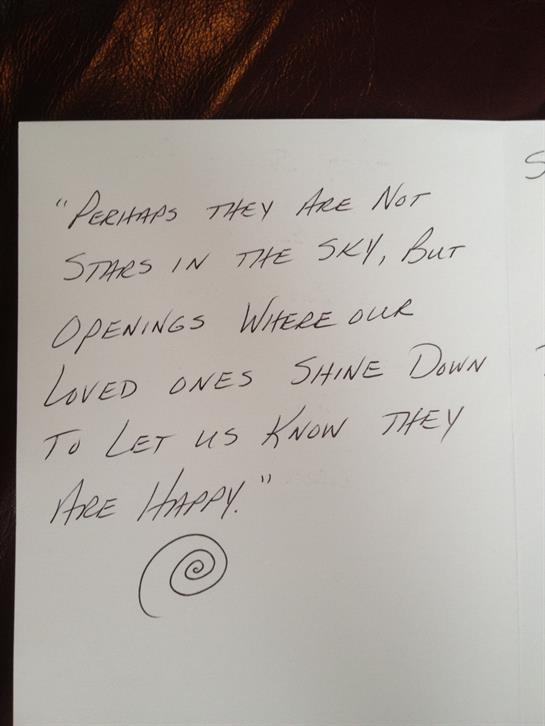 "Perhaps they Are Not
Stars in the Sky, But
Openings Where our
Loved ones Shine Down
To Let us Know they
Are Happy."
S